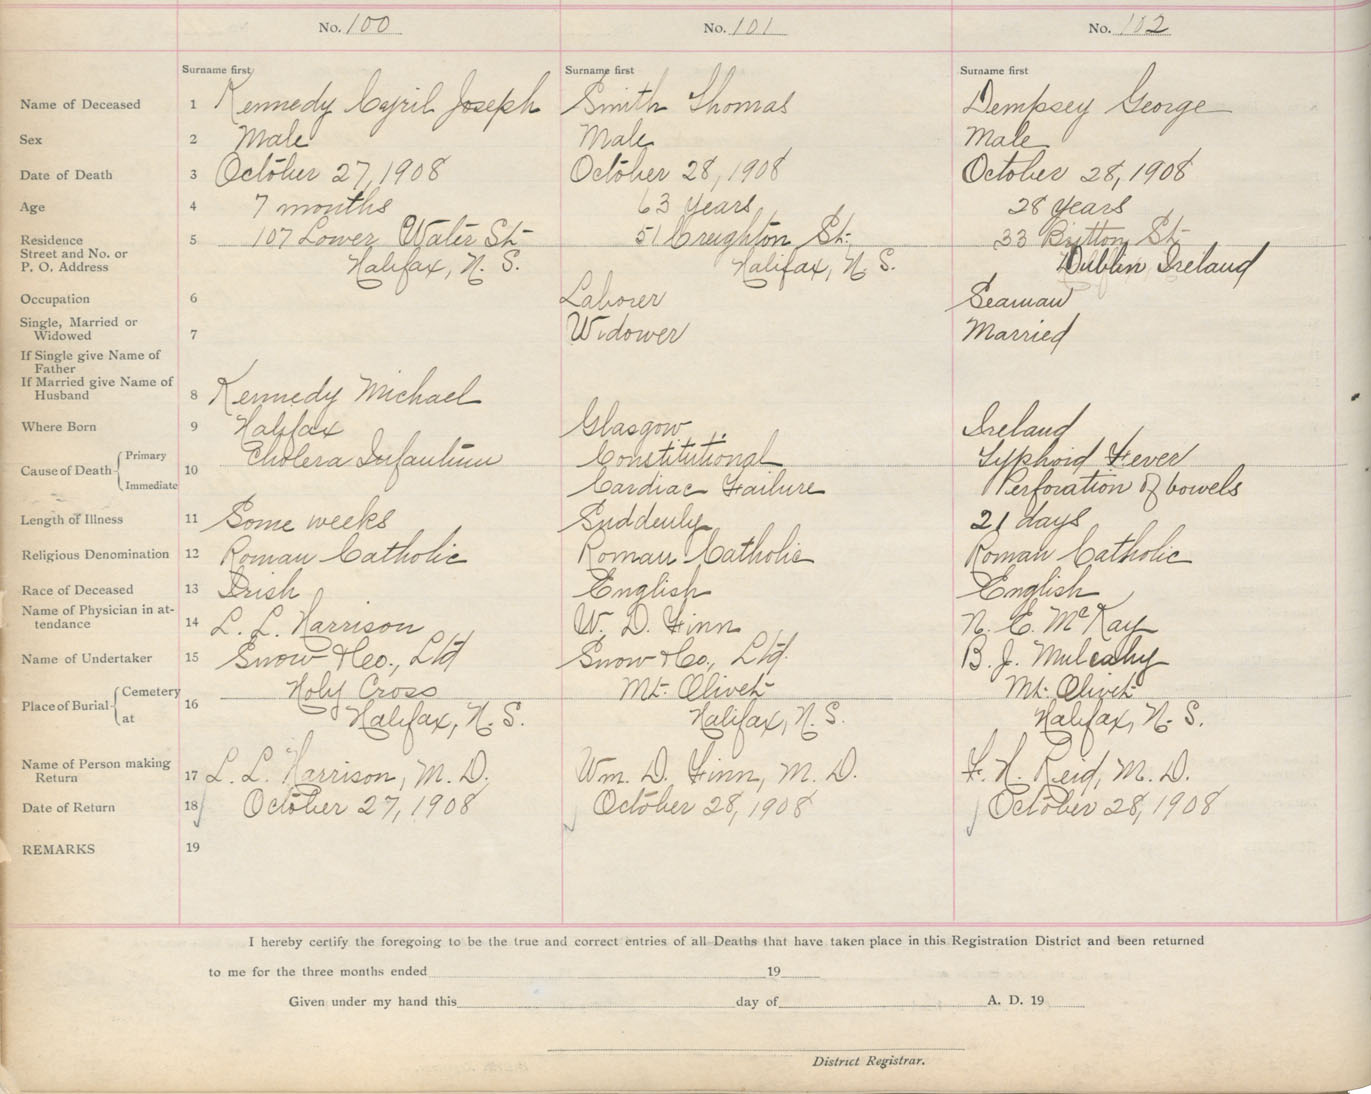 No. 100 No. 101 No. 102
Surname first Surname first Surname first
Name of Deceased 1 Kennedy Cyril Joseph Smith Thomas Dempsey George
Sex 2 Male Male Male
Date of Death 3 October 27, 1908 October 28, 1908 October 28, 1908
Age 4 7 months 63 years 28 years
Residence 5 107 Lower Water St. 51 Creighton St. 33 Britton St.
Street and No. or
P. O. Address Halifax, N. S. Halifax, N. S. Dublin Ireland
Occupation 6 Laborer Seaman
Single, Married or
Widowed 7 Widower Married
If Single give Name of
Father
If Married give Name of
Husband 8 Kennedy Michael
Where Born 9 Halifax Glasgow Ireland
Cause of Death Primary 10 Cholera Infantum Constitutional Typhoid Fever
Immediate Cardiac Failure Perforation of bowels
Length of Illness 11 Some weeks Suddenly 21 days
Religious Denomination 12 Roman Catholic Roman Catholic Roman Catholic
Race of Deceased 13 Irish English English
Name of Physician in at-
tendance 14 L. L. Harrison W. D. Finn N. E. McKay
Name of Undertaker 15 Snow & Co., Ltd Snow & Co., Ltd. B. J. Mulcahy
Place of Burial Cemetery 16 Holy Cross Mt. Olivet Mt. Olivet
at Halifax, N. S. Halifax, N. S. Halifax, N. S.
Name of Person making
Return 17 L. L. Harrison, M. D. Wm. D. Finn, M. D. F. H. Reid, M. D.
Date of Return 18 October 27, 1908 October 28, 1908 October 28, 1908
REMARKS 19
I hereby certify the foregoing to be the true and correct entries of all Deaths that have taken place in this Registration District and been returned
to me for the three months ended 19
Given under my hand this day of A. D. 19
District Registrar.